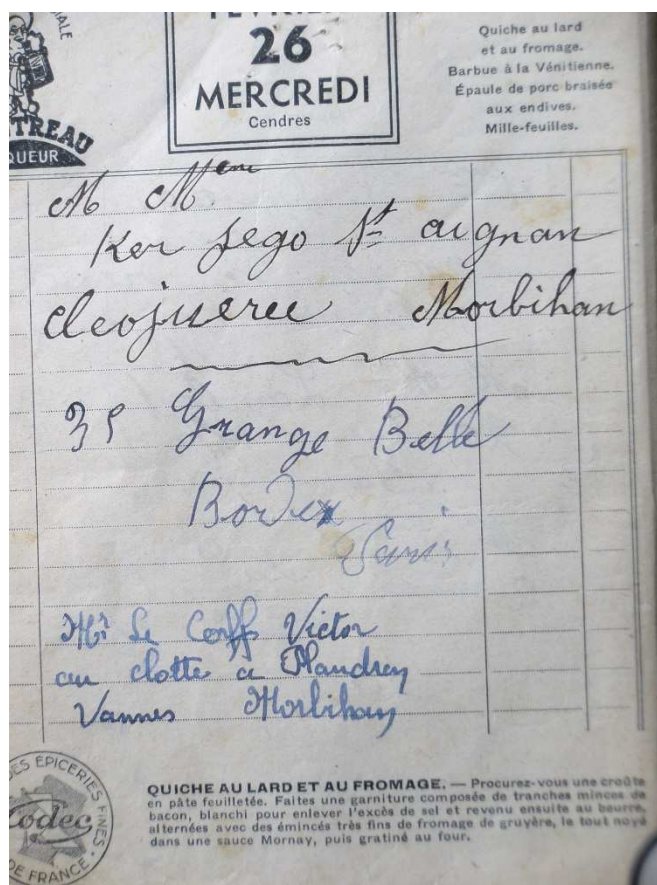 IALE
TREAU
QUEUR
FÉVRIER
26
MERCREDI
Cendres
Quiche au lard
et au fromage.
Barbue à la Vénitienne.
Épaule de porc braisée
aux endives.
Mille-feuilles.
M Mme
Ker Jego St aignan
cleojuerec Morbihan
35 Grange Belle
Bordex
Paris
Mr Le Corff Victor
au clotte a Plaudren
Vannes Morbihan
DES ÉPICERIES FINES
Codec
DE FRANCE
QUICHE AU LARD ET AU FROMAGE. — Procurez-vous une croûte
en pâte feuilletée. Faites une garniture composée de tranches minces de
bacon, blanchi pour enlever l'excès de sel et revenu ensuite au beurre,
alternées avec des émincés très fins de fromage de gruyère, le tout noyé
dans une sauce Mornay, puis gratiné au four.